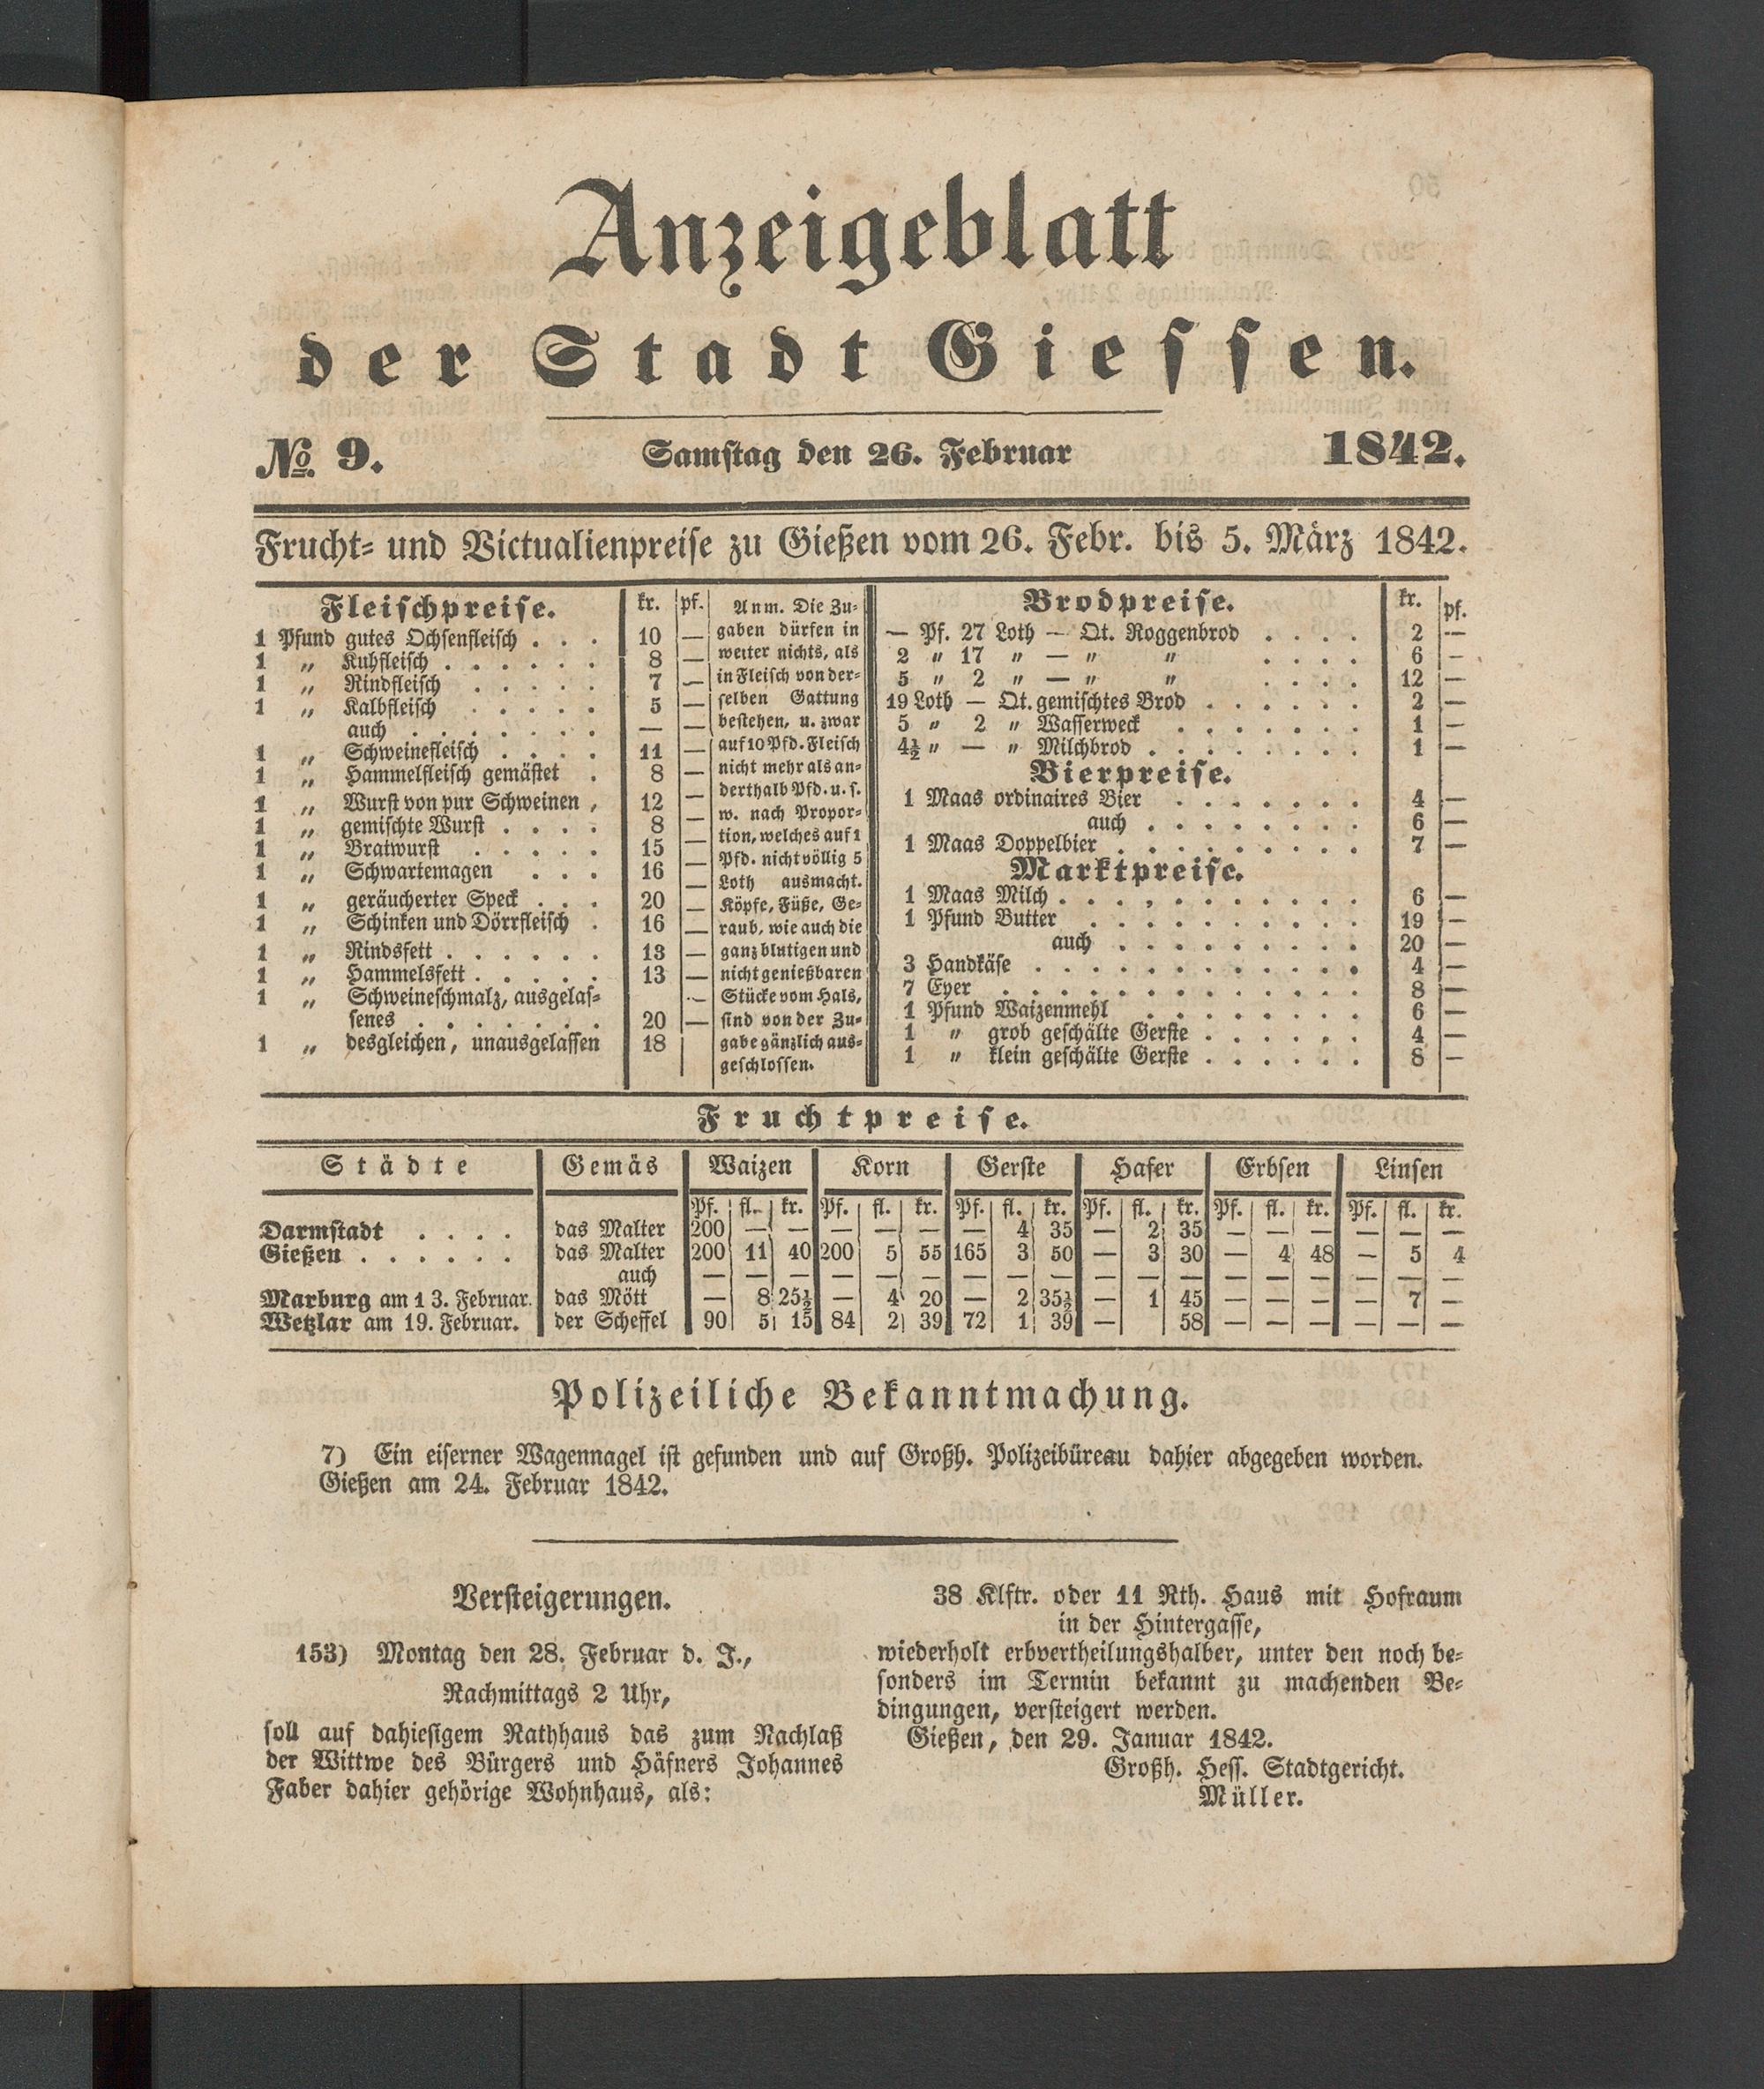 Anzeigeblatt
der Stadt Giessen.
No. 9. Samstag den 26. Februar 1842.
Frucht- und Victualienpreise zu Gießen vom 26. Febr. bis 5. März 1842.
Fleischpreise. kr. pf.
1 Pfund gutes Ochsenfleisch . . . 10 —
1 „ Kuhfleisch . . . . . . 8 —
1 „ Rindfleisch . . . . . 7 —
1 „ Kalbfleisch . . . . . 5 —
auch . . . . . . . — —
1 „ Schweinefleisch . . . . 11 —
1 „ Hammelfleisch gemästet . 8 —
1 „ Wurst von pur Schweinen , 12 —
1 „ gemischte Wurst . . . . 8 —
1 „ Bratwurst . . . . . 15 —
1 „ Schwartemagen . . . 16 —
1 „ geräucherter Speck . . . 20 —
1 „ Schinken und Dörrfleisch . 16 —
1 „ Rindsfett . . . . . . 13 —
1 „ Hammelsfett . . . . . 13 —
1 „ Schweineschmalz, ausgelas-
senes . . . . . . . 20 —
1 „ desgleichen, unausgelassen 18
Anm. Die Zu-
gaben dürfen in
weiter nichts, als
in Fleisch von der-
selben Gattung
bestehen, u. zwar
auf 10 Pfd. Fleisch
nicht mehr als an-
derthalb Pfd. u. s.
w. nach Propor-
tion, welches auf 1
Pfd. nicht völlig 5
Loth ausmacht.
Köpfe, Füße, Ge-
raub, wie auch die
ganz blutigen und
nicht genießbaren
Stücke vom Hals,
sind von der Zu-
gabe gänzlich aus-
geschlossen.
Brodpreise. kr. pf.
— Pf. 27 Loth — Qt. Roggenbrod . . . . 2 —
2 „ 17 „ — „ „ . . . . 6 —
5 „ 2 „ — „ „ . . . . 12 —
19 Loth — Qt. gemischtes Brod . . . . . . 2 —
5 „ 2 „ Wasserweck . . . . . . . 1 —
4½ „ — „ Milchbrod . . . . . . . . 1 —
Bierpreise.
1 Maas ordinaires Bier . . . . . . . 4 —
auch . . . . . . . . 6 —
1 Maas Doppelbier . . . . . . . . . 7 —
Marktpreise.
1 Maas Milch . . . . . . . . . . . 6 —
1 Pfund Butter . . . . . . . . . . 19 —
auch . . . . . . . . . 20 —
3 Handkäse . . . . . . . . . . . . 4 —
7 Eyer . . . . . . . . . . . . . 8 —
1 Pfund Waizenmehl . . . . . . . . 6 —
1 „ grob geschälte Gerste . . . . . . 4 —
1 „ klein geschälte Gerste . . . . . . 8 —
Fruchtpreise.
Städte Gemäs Waizen Korn Gerste Hafer Erbsen Linsen
Pf. fl. kr. Pf. fl. kr. Pf. fl. kr. Pf. fl. kr. Pf. fl. kr. Pf. fl. kr.
Darmstadt . . . . das Malter 200 — — — — — — 4 35 — 2 35 — — — — — —
Gießen . . . . . . das Malter 200 11 40 200 5 55 165 3 50 — 3 30 — 4 48 — 5 4
auch — — — — — — — — — — — — — — — — — —
Marburg am 13. Februar. das Mött — 8 25½ — 4 20 — 2 35½ — 1 45 — — — — 7 —
Wetzlar am 19. Februar. der Scheffel 90 5 15 84 2 39 72 1 39 — 58 — — — — — —
Polizeiliche Bekanntmachung.
7) Ein eiserner Wagennagel ist gefunden und auf Großh. Polizeibüreau dahier abgegeben worden.
Gießen am 24. Februar 1842.
Versteigerungen.
153) Montag den 28. Februar d. J.,
Nachmittags 2 Uhr,
soll auf dahiesigem Rathhaus das zum Nachlaß
der Wittwe des Bürgers und Häfners Johannes
Faber dahier gehörige Wohnhaus, als:
38 Klftr. oder 11 Rth. Haus mit Hofraum
in der Hintergasse,
wiederholt erbvertheilungshalber, unter den noch be-
sonders im Termin bekannt zu machenden Be-
dingungen, versteigert werden.
Gießen, den 29. Januar 1842.
Großh. Hess. Stadtgericht.
Müller.